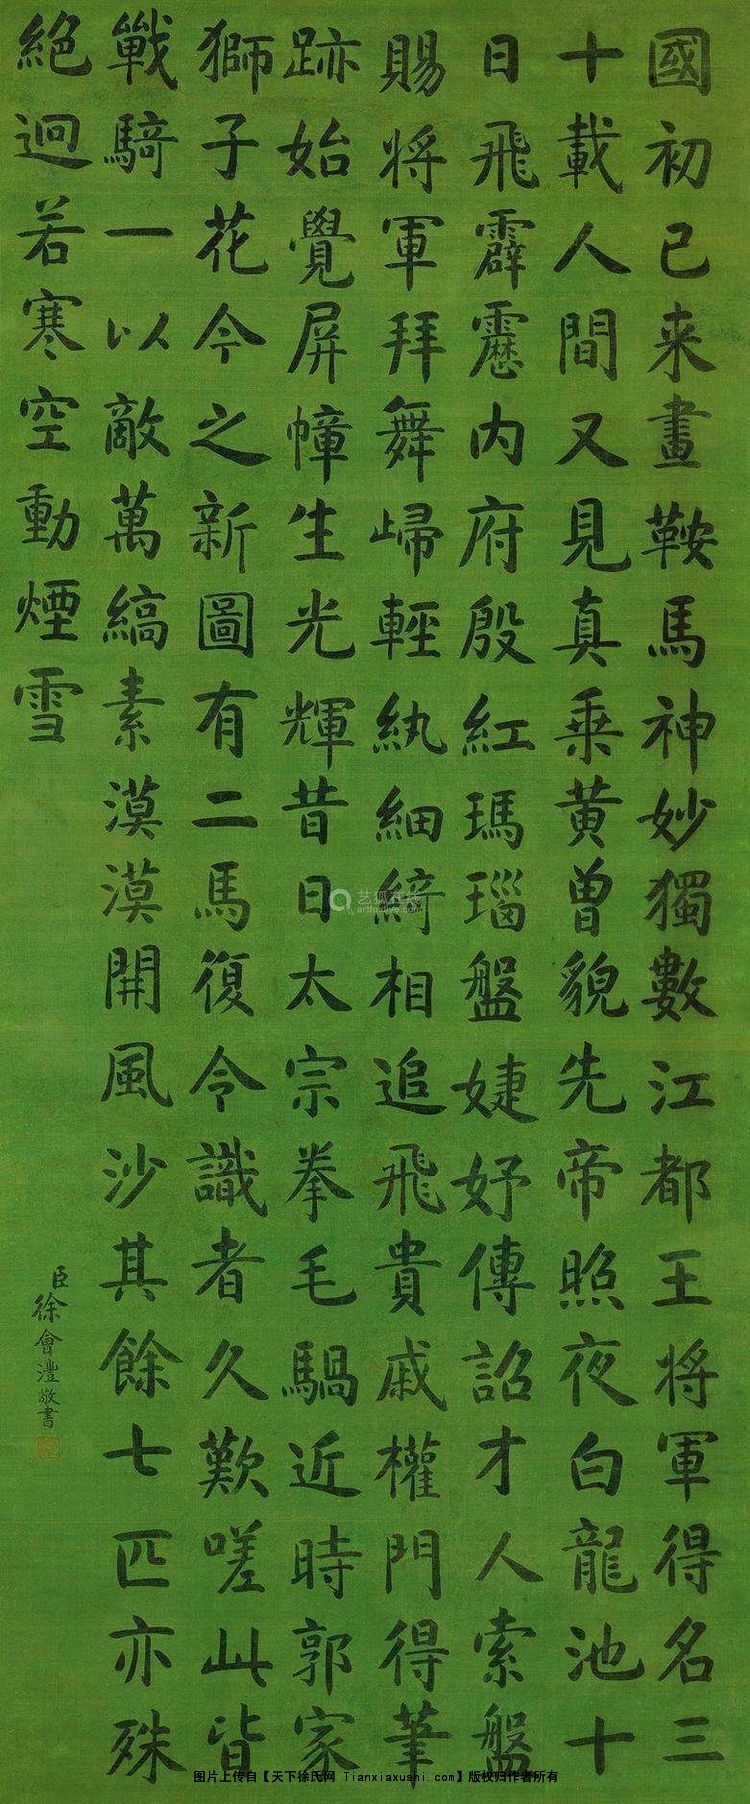 國初已来畫鞍馬神妙獨數江都王将軍得名三
十載人間又見真乗黄曾貌先帝照夜白龍池十
日飛霹靂内府殷紅瑪瑙盤婕妤傳詔才人索盤
賜将軍拜舞歸輕紈細綺相追飛貴戚權門得筆
跡始覺屏幛生光輝昔日太宗拳毛騧近時郭家
獅子花今之新圖有二馬復令識者久歎嗟此皆
戰騎一以敵萬縞素漠漠開風沙其餘七匹亦殊
絕迥若寒空動煙雪
臣徐會灃敬書
艺狐在线
artfoxlive.com
图片上传自【天下徐氏网 Tianxiaxushi.com】版权归作者所有